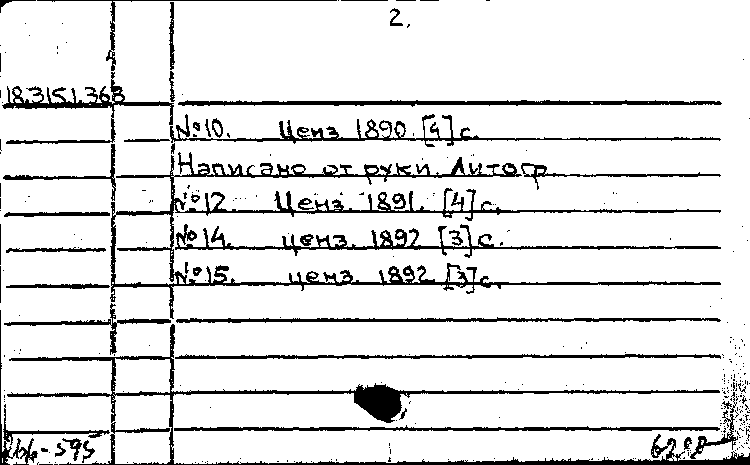 2.
18.3151.368
№10. Ценз. 1890. [4] с.
Написано от руки. Литогр.
№12. Ценз. 1891. [4] с.
№14. ценз. 1892 [3] с.
№15. ценз. 1892 [3] с.